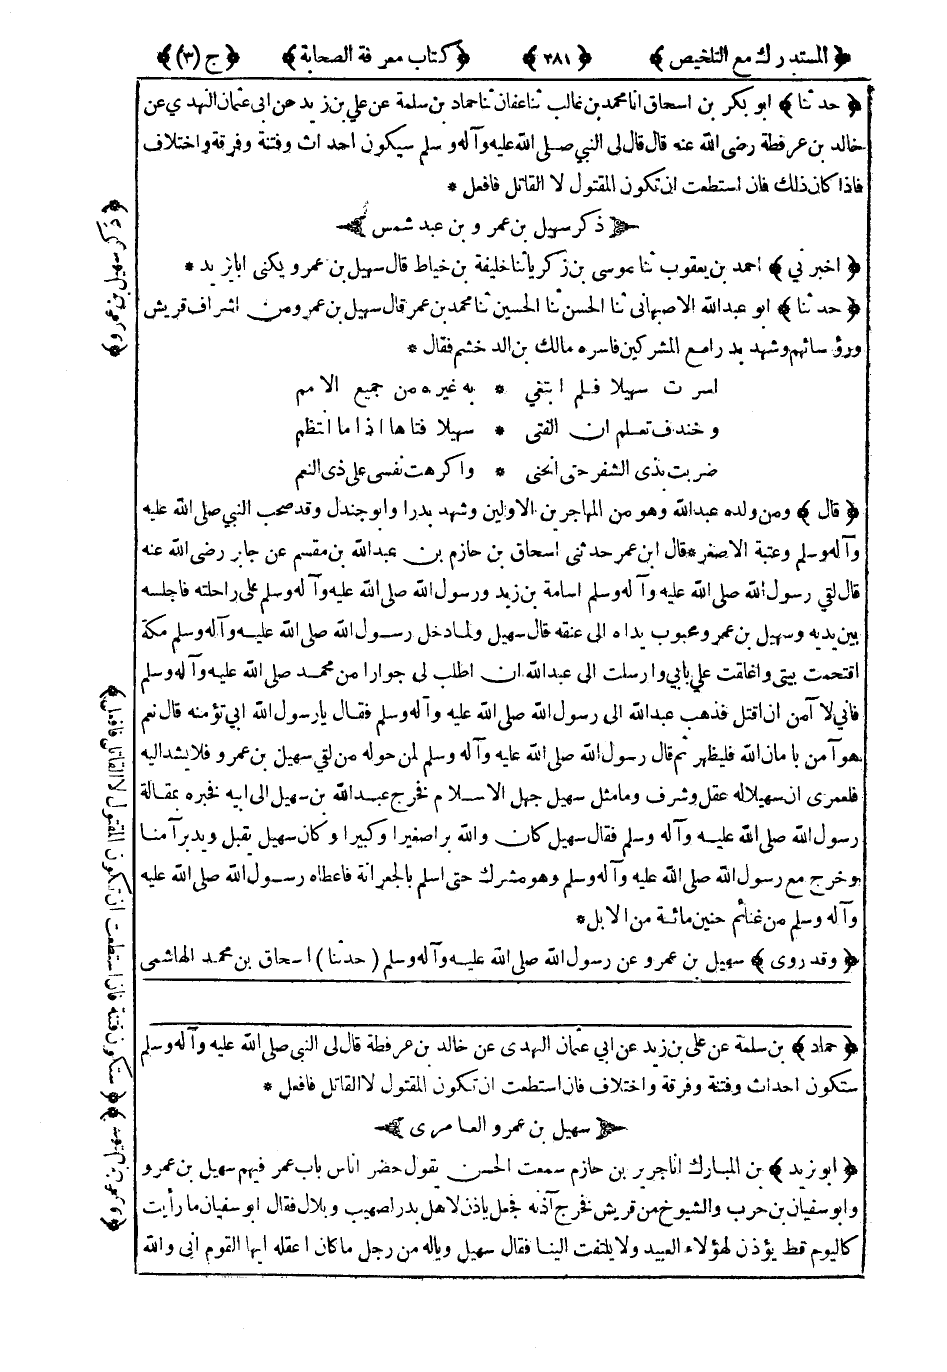 ﴿ المستدرك مع التلخيص ﴾ ﴿ ٢٨١ ﴾ ﴿ كتاب معرفة الصحابة ﴾ ﴿ ج (٣) ﴾
﴿ حدثنا ﴾ ابو بكر بن اسحاق انا محمد بن غالب ثنا عفان ثنا حماد بن سلمة عن علي بن زيد عن ابى عثمان النهدي عن
خالد بن عرفطة رضى الله عنه قال قال لى النبي صلى الله عليه وآله وسلم سيكون احداث وفتنة وفرقة واختلاف
فاذا كان ذلك فان استطعت ان تكون المقتول لا القاتل فافعل *
ذكر سهيل بن عمرو بن عبد شمس
﴿ اخبرني ﴾ احمد بن يعقوب ثنا موسى بن زكريا ثنا خليفة بن خياط قال سهيل بن عمرو يكنى ابا يزيد *
﴿ حدثنا ﴾ ابو عبدالله الاصبهانى ثنا الحسن ثنا الحسين ثنا محمد بن عمر قال سهيل بن عمرو من اشراف قريش
ورؤسائهم وشهد بدرا مع المشركين فاسره مالك بن الدخشم فقال *
اسرت سهيلا فلم ابتغي * به غيره من جميع الامم
وخندف تعلم ان الفتى * سهيلا فتاها اذا ما انتظم
ضربت بذى الشفر حتى انحنى * واكرهت نفسى على ذى النعم
﴿ قال ﴾ ومن ولده عبدالله وهو من المهاجرين الاولين وشهد بدرا وابو جندل وقد صحب النبي صلى الله عليه
وآله وسلم وعتبة الاصغر * قال ابن عمر حدثنى اسحاق بن حازم بن عبدالله بن مقسم عن جابر رضى الله عنه
قال لقي رسول الله صلى الله عليه وآله وسلم اسامة بن زيد ورسول الله صلى الله عليه وآله وسلم على راحلته فاجلسه
بين يديه وسهيل بن عمرو مجبوب يداه الى عنقه قال سهيل ولما دخل رسول الله صلى الله عليه وآله وسلم مكة
اقتحمت بيتى واغلقت علي بابي وارسلت الى عبدالله ان اطلب لى جوارا من محمد صلى الله عليه وآله وسلم
فاني لا آمن ان اقتل فذهب عبدالله الى رسول الله صلى الله عليه وآله وسلم فقال يا رسول الله ابي تؤمنه قال نعم
هو آمن بامان الله فليظهر ثم قال رسول الله صلى الله عليه وآله وسلم لمن حوله من لقي سهيل بن عمرو فلا يشد اليه
فلعمرى ان سهيلا له عقل وشرف وما مثل سهيل جهل الاسلام فخرج عبدالله بن سهيل الى ابيه فخبره بمقالة
رسول الله صلى الله عليه وآله وسلم فقال سهيل كان والله برا صغيرا وكبيرا وكان سهيل يقبل ويدبر آمنا
وخرج مع رسول الله صلى الله عليه وآله وسلم وهو مشرك حتى اسلم بالجعرانة فاعطاه رسول الله صلى الله عليه
وآله وسلم من غنائم حنين مائة من الابل *
﴿ وقد روى ﴾ سهيل بن عمرو عن رسول الله صلى الله عليه وآله وسلم (حدثنا) اسحاق بن محمد الهاشمى
﴿ حماد ﴾ بن سلمة عن على بن زيد عن ابي عثمان النهدى عن خالد بن عرفطة قال لى النبي صلى الله عليه وآله وسلم
ستكون احداث وفتنة وفرقة واختلاف فان استطعت ان تكون المقتول لا القاتل فافعل *
سهيل بن عمرو العامرى
﴿ ابو زيد ﴾ بن المبارك انا جرير بن حازم سمعت الحسن يقول حضر اناس باب عمر فيهم سهيل بن عمرو
وابو سفيان بن حرب والشيوخ من قريش فخرج آذنه فجعل ياذن لاهل بدر لصهيب وبلال فقال ابو سفيان ما رأيت
كاليوم قط يؤذن لهؤلاء العبيد ولا يلتفت الينا فقال سهيل وياله من رجل ما كان اعقله ايها القوم انى والله
﴿ ذكر سهيل بن عمرو ﴾
﴿ ستكون فتنة فان استطعت ان تكون المقتول لا القاتل فافعل ﴾